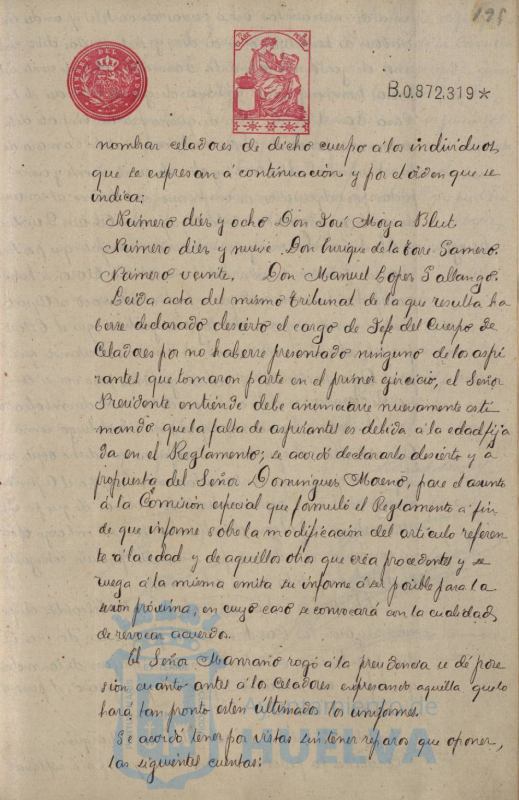 195
TIMBRE DEL ESTADO
B.0.872.319*
nombrar celadores de dicho cuerpo á los individuos
que se expresan á continuación y por el orden que se
indica:
Número diez y ocho Don José Moya Blut.
Número diez y nueve. Don Enrique de la Torre Gamero.
Número veinte. Don Manuel Lopez Pallango.
Leida acta del mismo tribunal de la que resulta ha
berse declarado desierto el cargo de Jefe del Cuerpo de
Celadores por no haberse presentado ninguno de los aspi
rantes que tomaron parte en el primer ejercicio, el Señor
Presidente entiende debe anunciarse nuevamente esti
mando que la falta de aspirantes es debida á la edad fija
da en el Reglamento; se acordó declararlo desierto y á
propuesta del Señor Dominguez Moreno, pase el asunto
á la Comisión especial que formuló el Reglamento á fin
de que informe sobre la modificación del articulo referen
te á la edad y de aquellos otros que créa procedentes y se
ruega á la misma emita su informe á ser posible para la
sesión próxima, en cuyo caso se convocará con la cualidad
de revocar acuerdo.
El Señor Manzano rogó á la presidencia se dé pose
sion cuanto antes á los Celadores expresando aquella que lo
hará tan pronto esten ultimados los uniformes.
Se acordó tener por vistas sin tener reparos que oponer,
las siguientes cuentas:
Ayuntamiento de
HUELVA